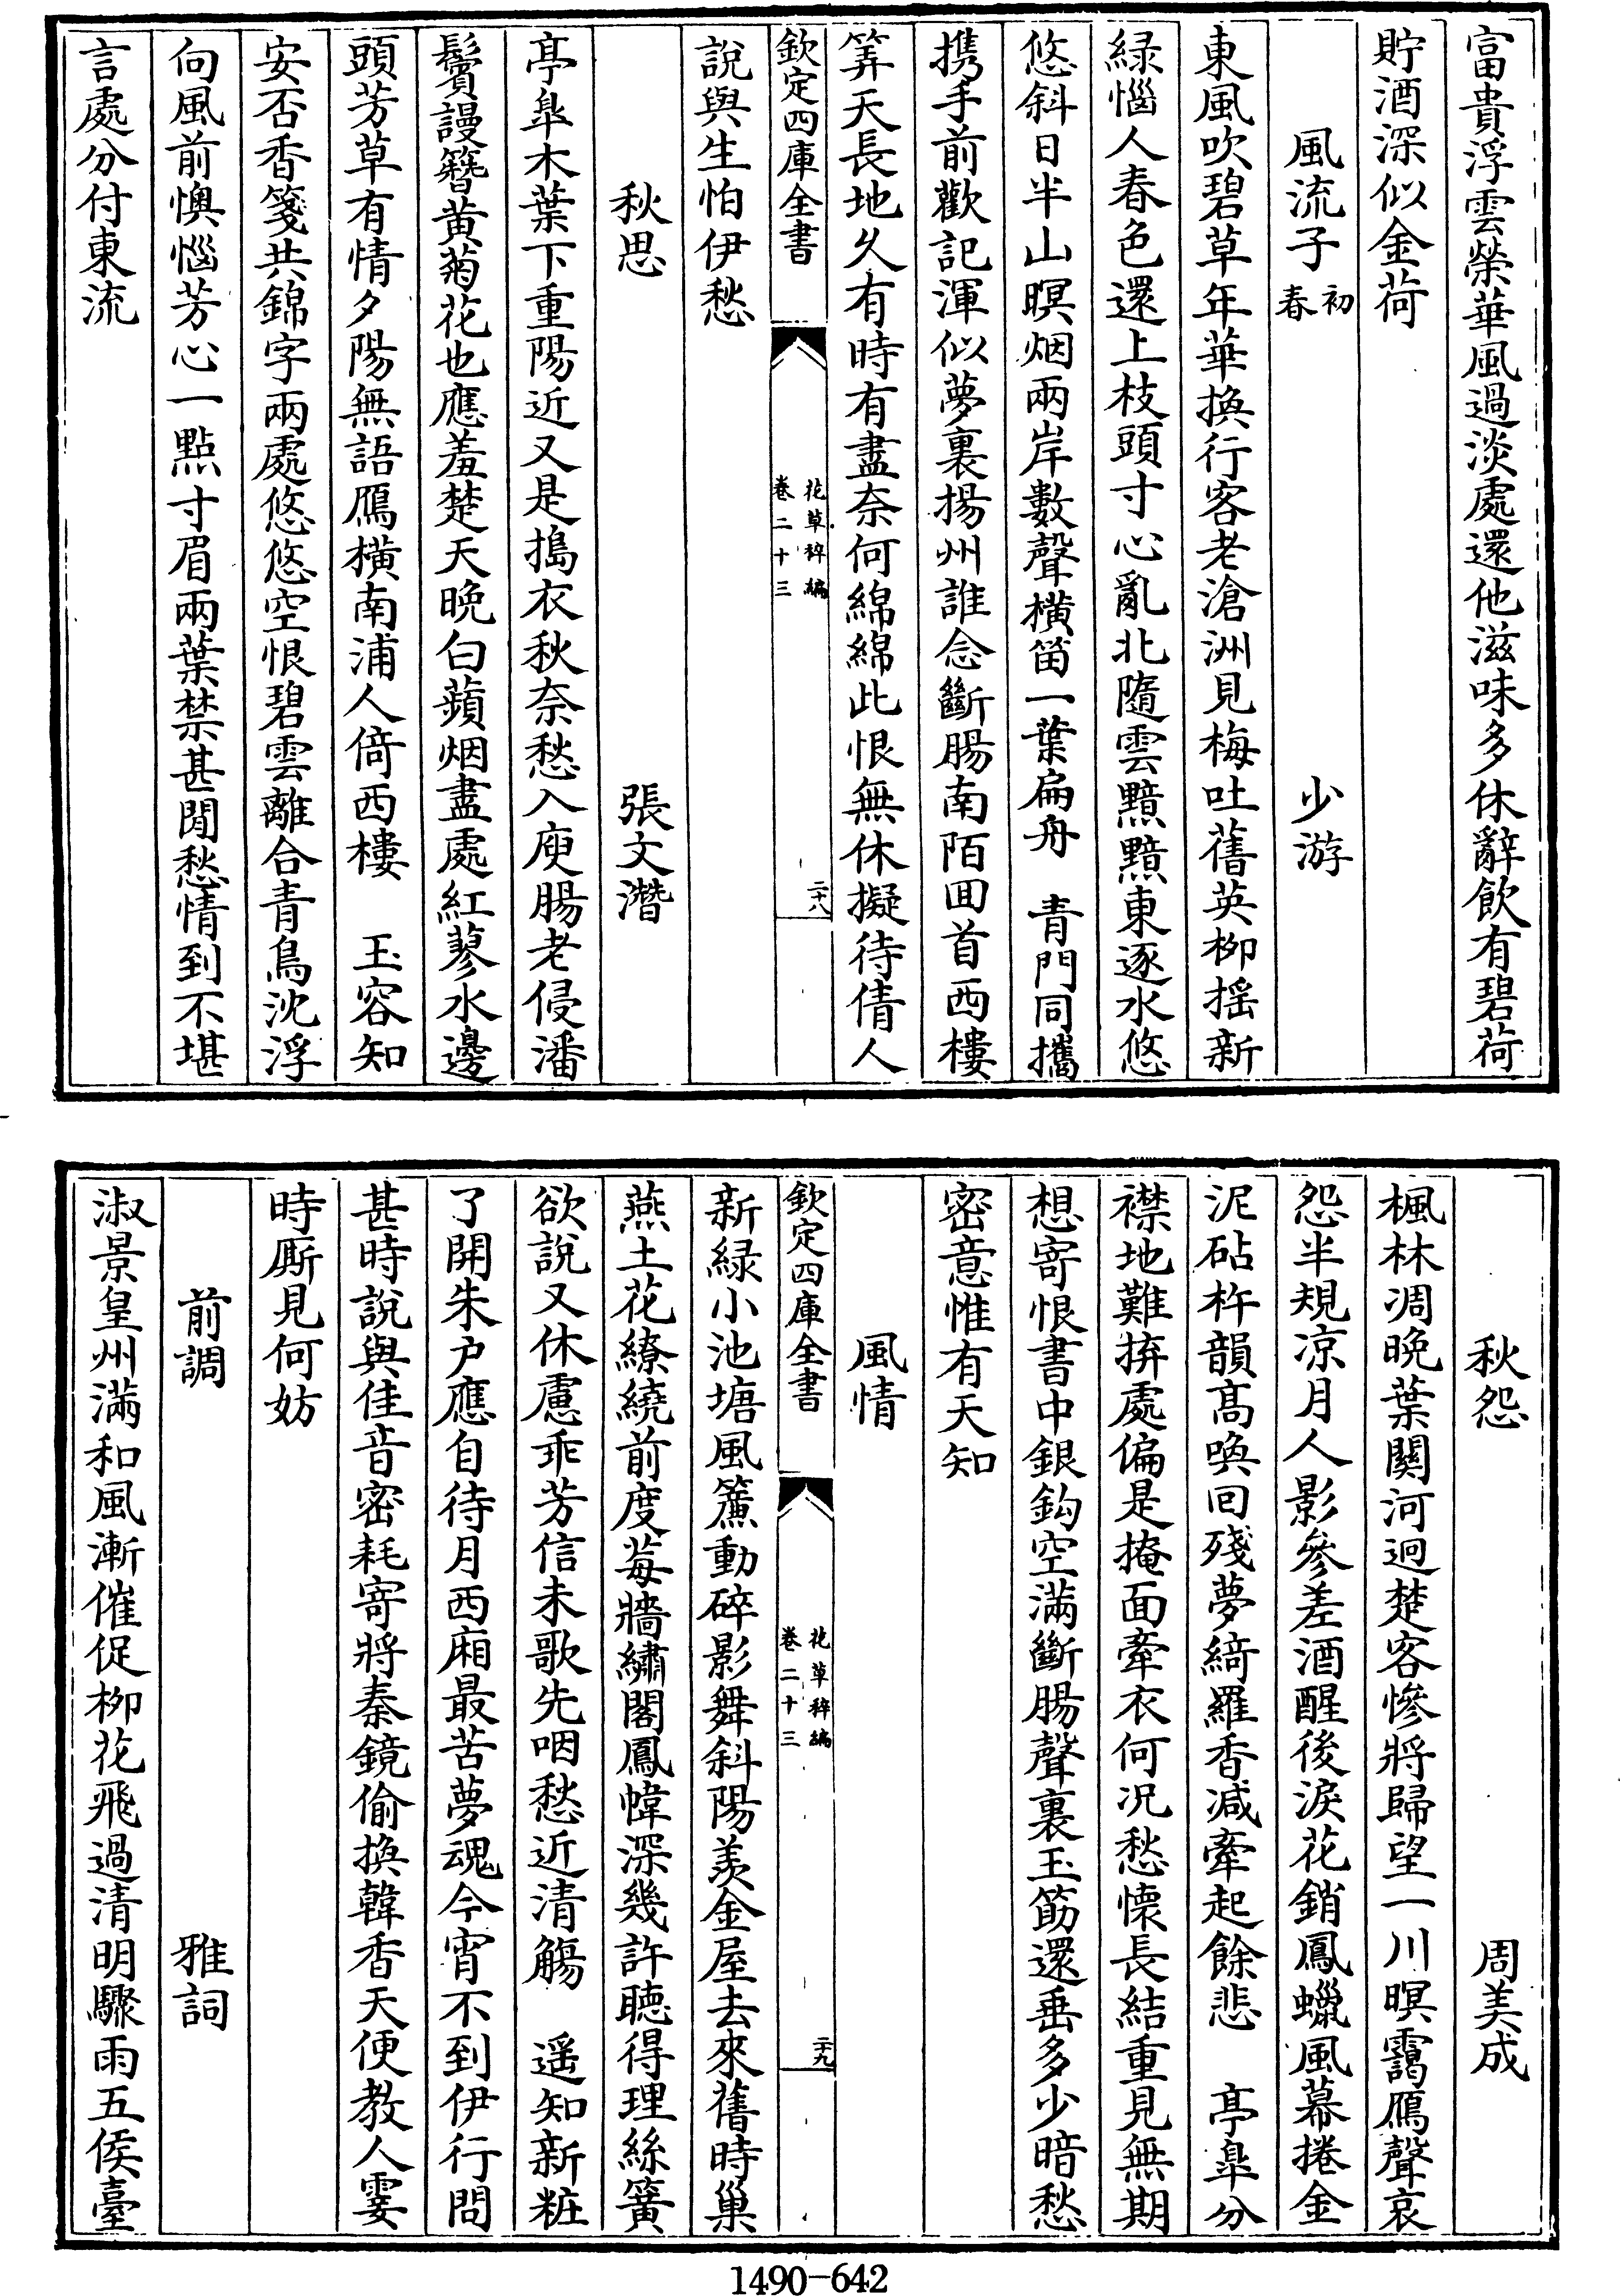 富貴浮雲榮華風過淡處還他滋味多休辭飲有碧荷
貯酒深似金荷
風流子初春　少游
東風吹碧草年華換行客老滄洲見梅吐舊英柳揺新
緑惱人春色還上枝頭寸心亂北隨雲黯黯東逐水悠
悠斜日半山暝烟兩岸數聲橫笛一葉扁舟　青門同攜
携手前歡記渾似夢裏揚州誰念斷腸南陌囬首西樓
筭天長地久有時有盡奈何綿綿此恨無休擬待倩人
欽定四庫全書　花草稡編卷二十三　二十八
說與生怕伊愁
秋思　張文潛
亭臯木葉下重陽近又是搗衣秋奈愁入庾腸老侵潘
鬢謾簪黄菊花也應羞楚天晚白蘋烟盡處紅蓼水邊
頭芳草有情夕陽無語鴈横南浦人倚西樓　玉容知
安否香箋共錦字兩處悠悠空恨碧雲離合青鳥沈浮
向風前懊惱芳心一點寸眉兩葉禁甚閒愁情到不堪
言處分付東流
秋怨　周美成
楓林凋晚葉關河迥楚客慘將歸望一川暝靄鴈聲哀
怨半規凉月人影參差酒醒後淚花銷鳳蠟風幕捲金
泥砧杵韻髙喚回殘夢綺羅香减牽起餘悲　亭臯分
襟地難拚處偏是掩面牽衣何况愁懐長結重見無期
想寄恨書中銀鈎空滿斷腸聲裏玉筯還垂多少暗愁
密意惟有天知
風情
欽定四庫全書　花草稡編卷二十三　二十九
新綠小池塘風簾動碎影舞斜陽羨金屋去來舊時巢
燕土花繚繞前度莓牆繡閣鳳幃深幾許聴得理絲簧
欲說又休慮乖芳信未歌先咽愁近清觴　遥知新粧
了開朱户應自待月西廂最苦夢魂今宵不到伊行問
甚時說與佳音密耗寄將秦鏡偷換韓香天便教人霎
時厮見何妨
前調　雅詞
淑景皇州滿和風漸催促柳花飛過清明驟雨五侯臺
1490-642